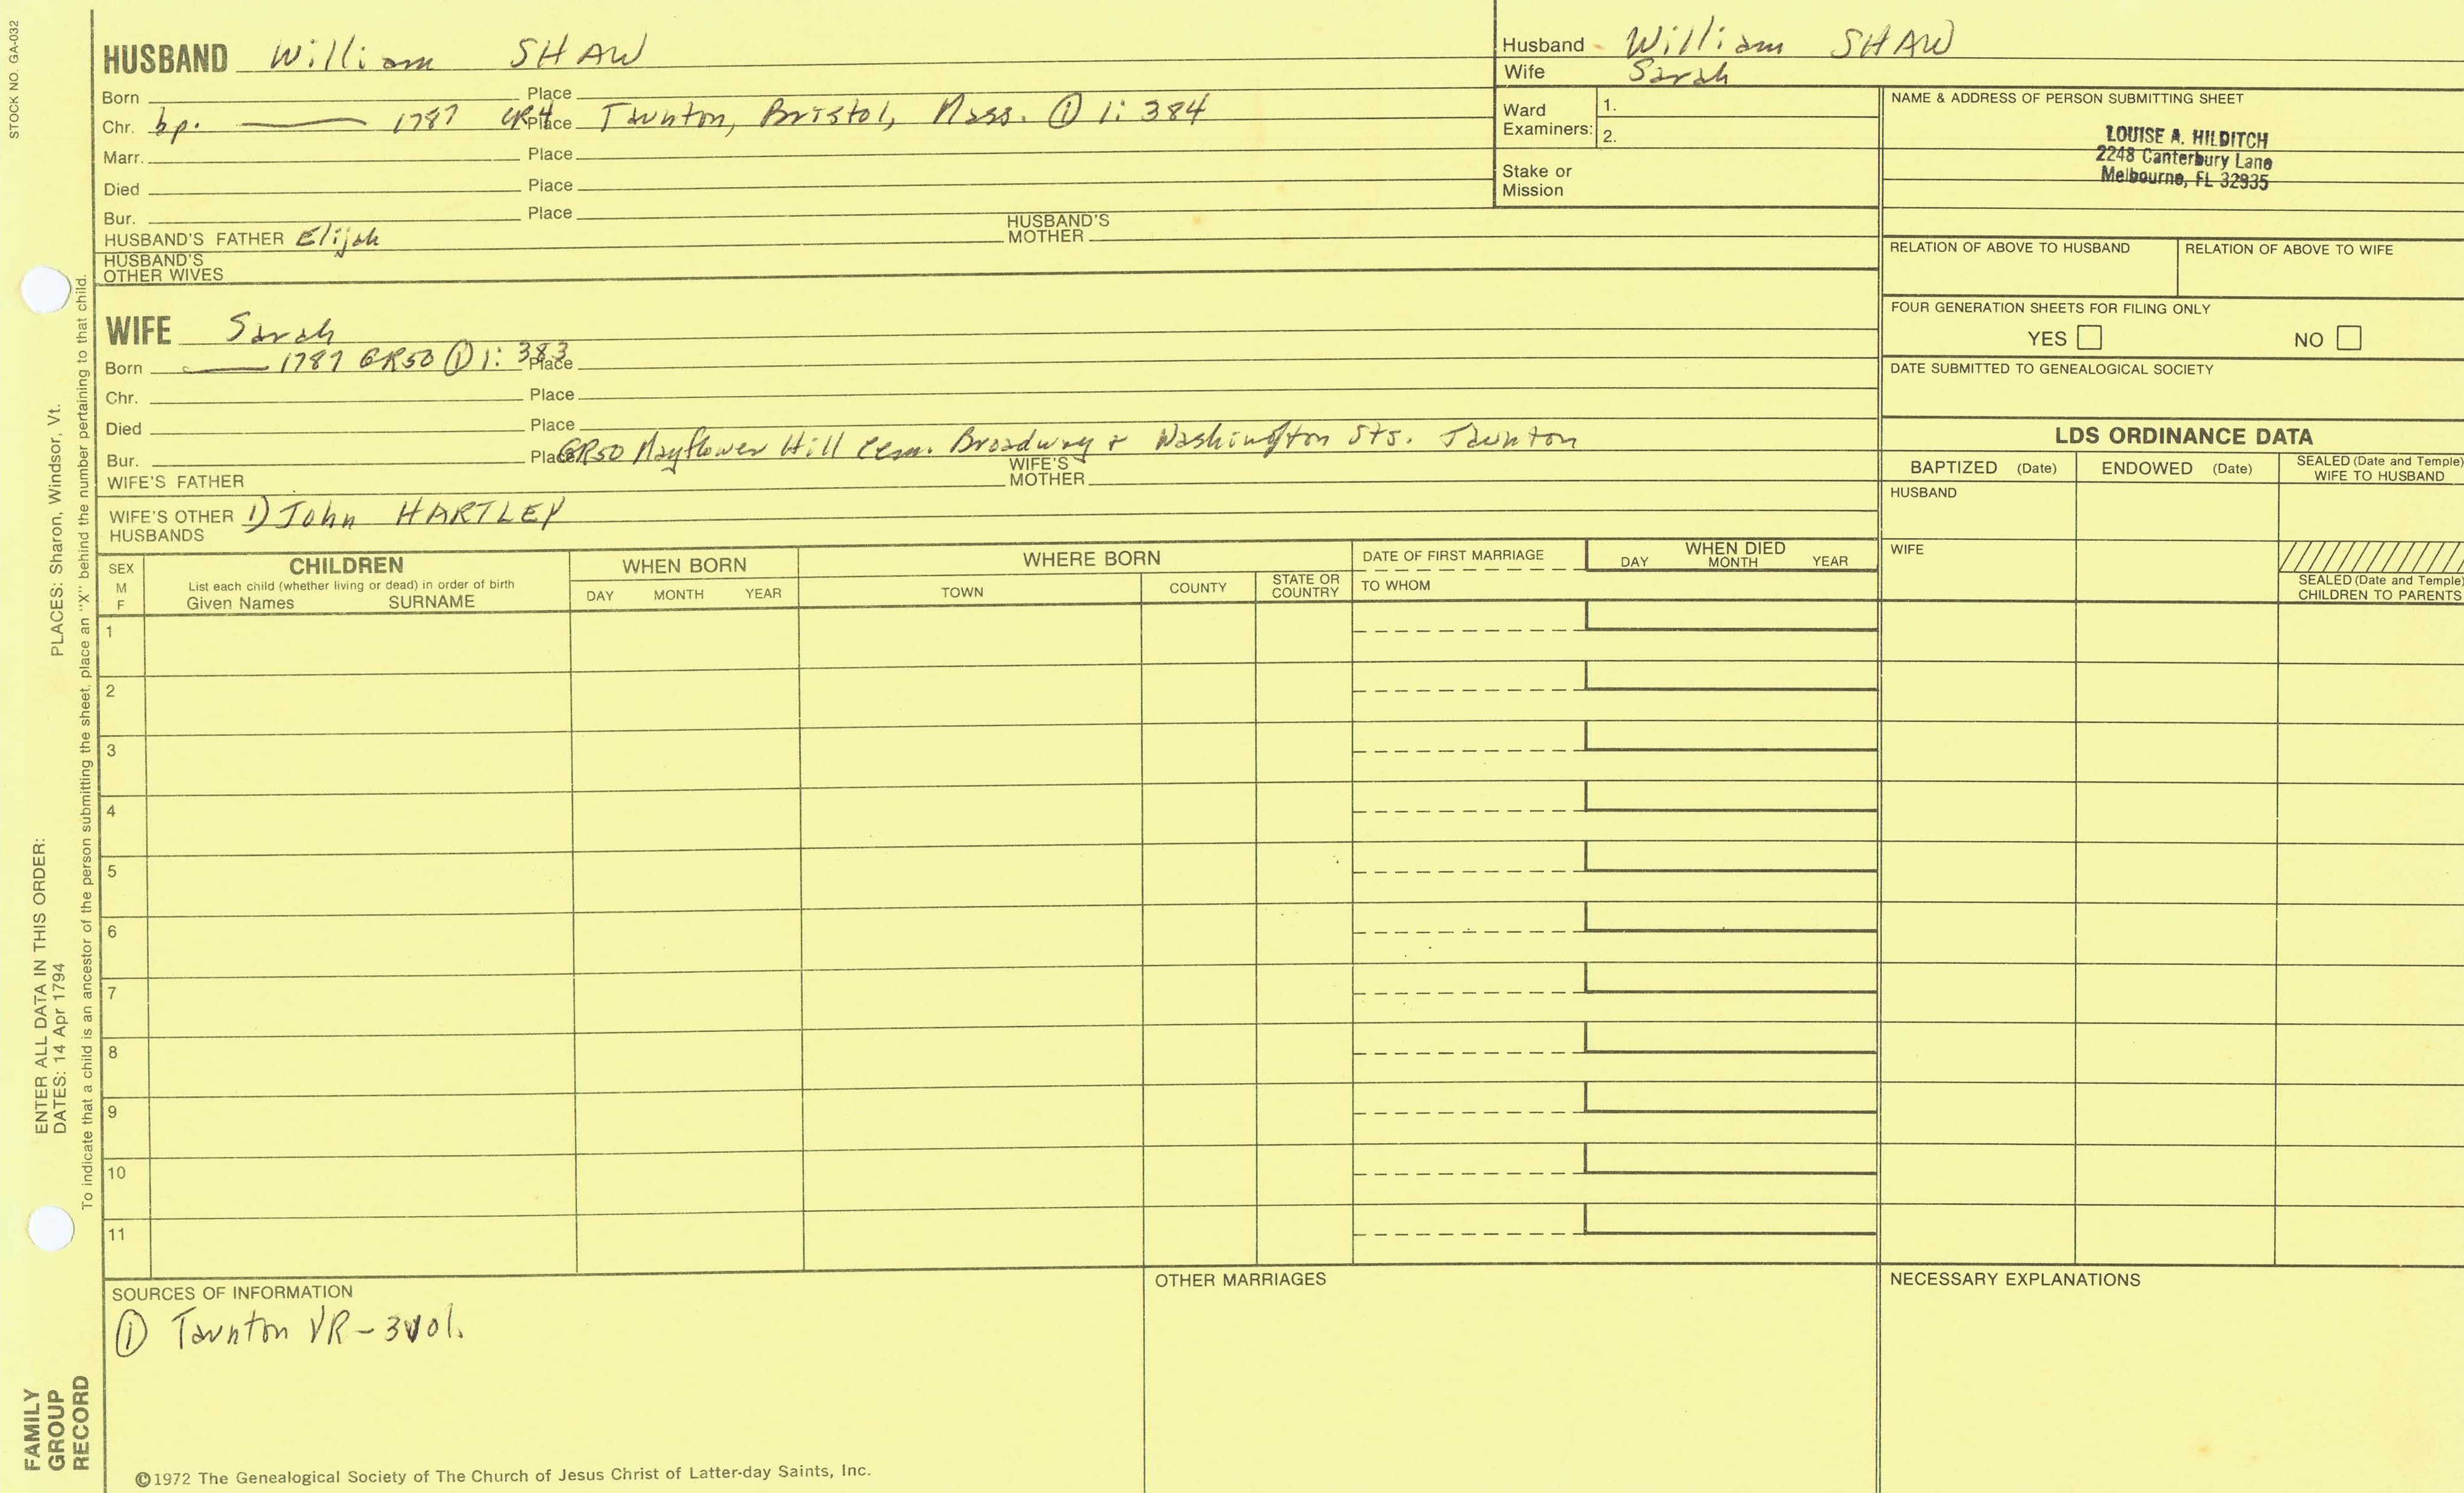 STOCK NO. GA-032
HUSBAND William SHAW
Born Place
Chr. bp. 1787 CR4 Place Taunton, Bristol, Mass. ① 1: 384
Marr. Place
Died Place
Bur. Place
HUSBAND'S FATHER Elijah HUSBAND'S MOTHER
HUSBAND'S OTHER WIVES
WIFE Sarah
Born 1787 GR50 ① 1: 383 Place
Chr. Place
Died Place
Bur. Place GR50 Mayflower Hill Cem. Broadway + Washington Sts. Taunton
WIFE'S FATHER WIFE'S MOTHER
WIFE'S OTHER HUSBANDS 1) John HARTLEY
Husband William SHAW
Wife Sarah
Ward Examiners: 1.
2.
Stake or Mission
NAME & ADDRESS OF PERSON SUBMITTING SHEET
LOUISE A. HILDITCH
2248 Canterbury Lane
Melbourne, FL 32935
RELATION OF ABOVE TO HUSBAND RELATION OF ABOVE TO WIFE
FOUR GENERATION SHEETS FOR FILING ONLY
YES NO
DATE SUBMITTED TO GENEALOGICAL SOCIETY
LDS ORDINANCE DATA
BAPTIZED (Date) ENDOWED (Date) SEALED (Date and Temple) WIFE TO HUSBAND
HUSBAND
WIFE
SEALED (Date and Temple) CHILDREN TO PARENTS
SEX M F
CHILDREN
List each child (whether living or dead) in order of birth
Given Names SURNAME
WHEN BORN
DAY MONTH YEAR
WHERE BORN
TOWN COUNTY STATE OR COUNTRY
DATE OF FIRST MARRIAGE
TO WHOM
WHEN DIED
DAY MONTH YEAR
1
2
3
4
5
6
7
8
9
10
11
SOURCES OF INFORMATION
① Taunton VR - 3 vol.
OTHER MARRIAGES
NECESSARY EXPLANATIONS
©1972 The Genealogical Society of The Church of Jesus Christ of Latter-day Saints, Inc.
ENTER ALL DATA IN THIS ORDER:
DATES: 14 Apr 1794 PLACES: Sharon, Windsor, Vt.
To indicate that a child is an ancestor of the person submitting the sheet, place an "X" behind the number pertaining to that child.
FAMILY
GROUP
RECORD